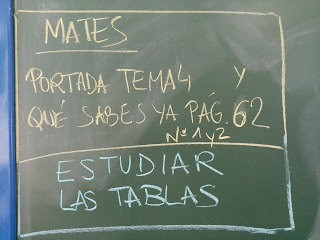 MATES
PORTADA TEMA 4 Y
QUÉ SABES YA PÁG. 62
Nº 1 y 2
ESTUDIAR
LAS TABLAS